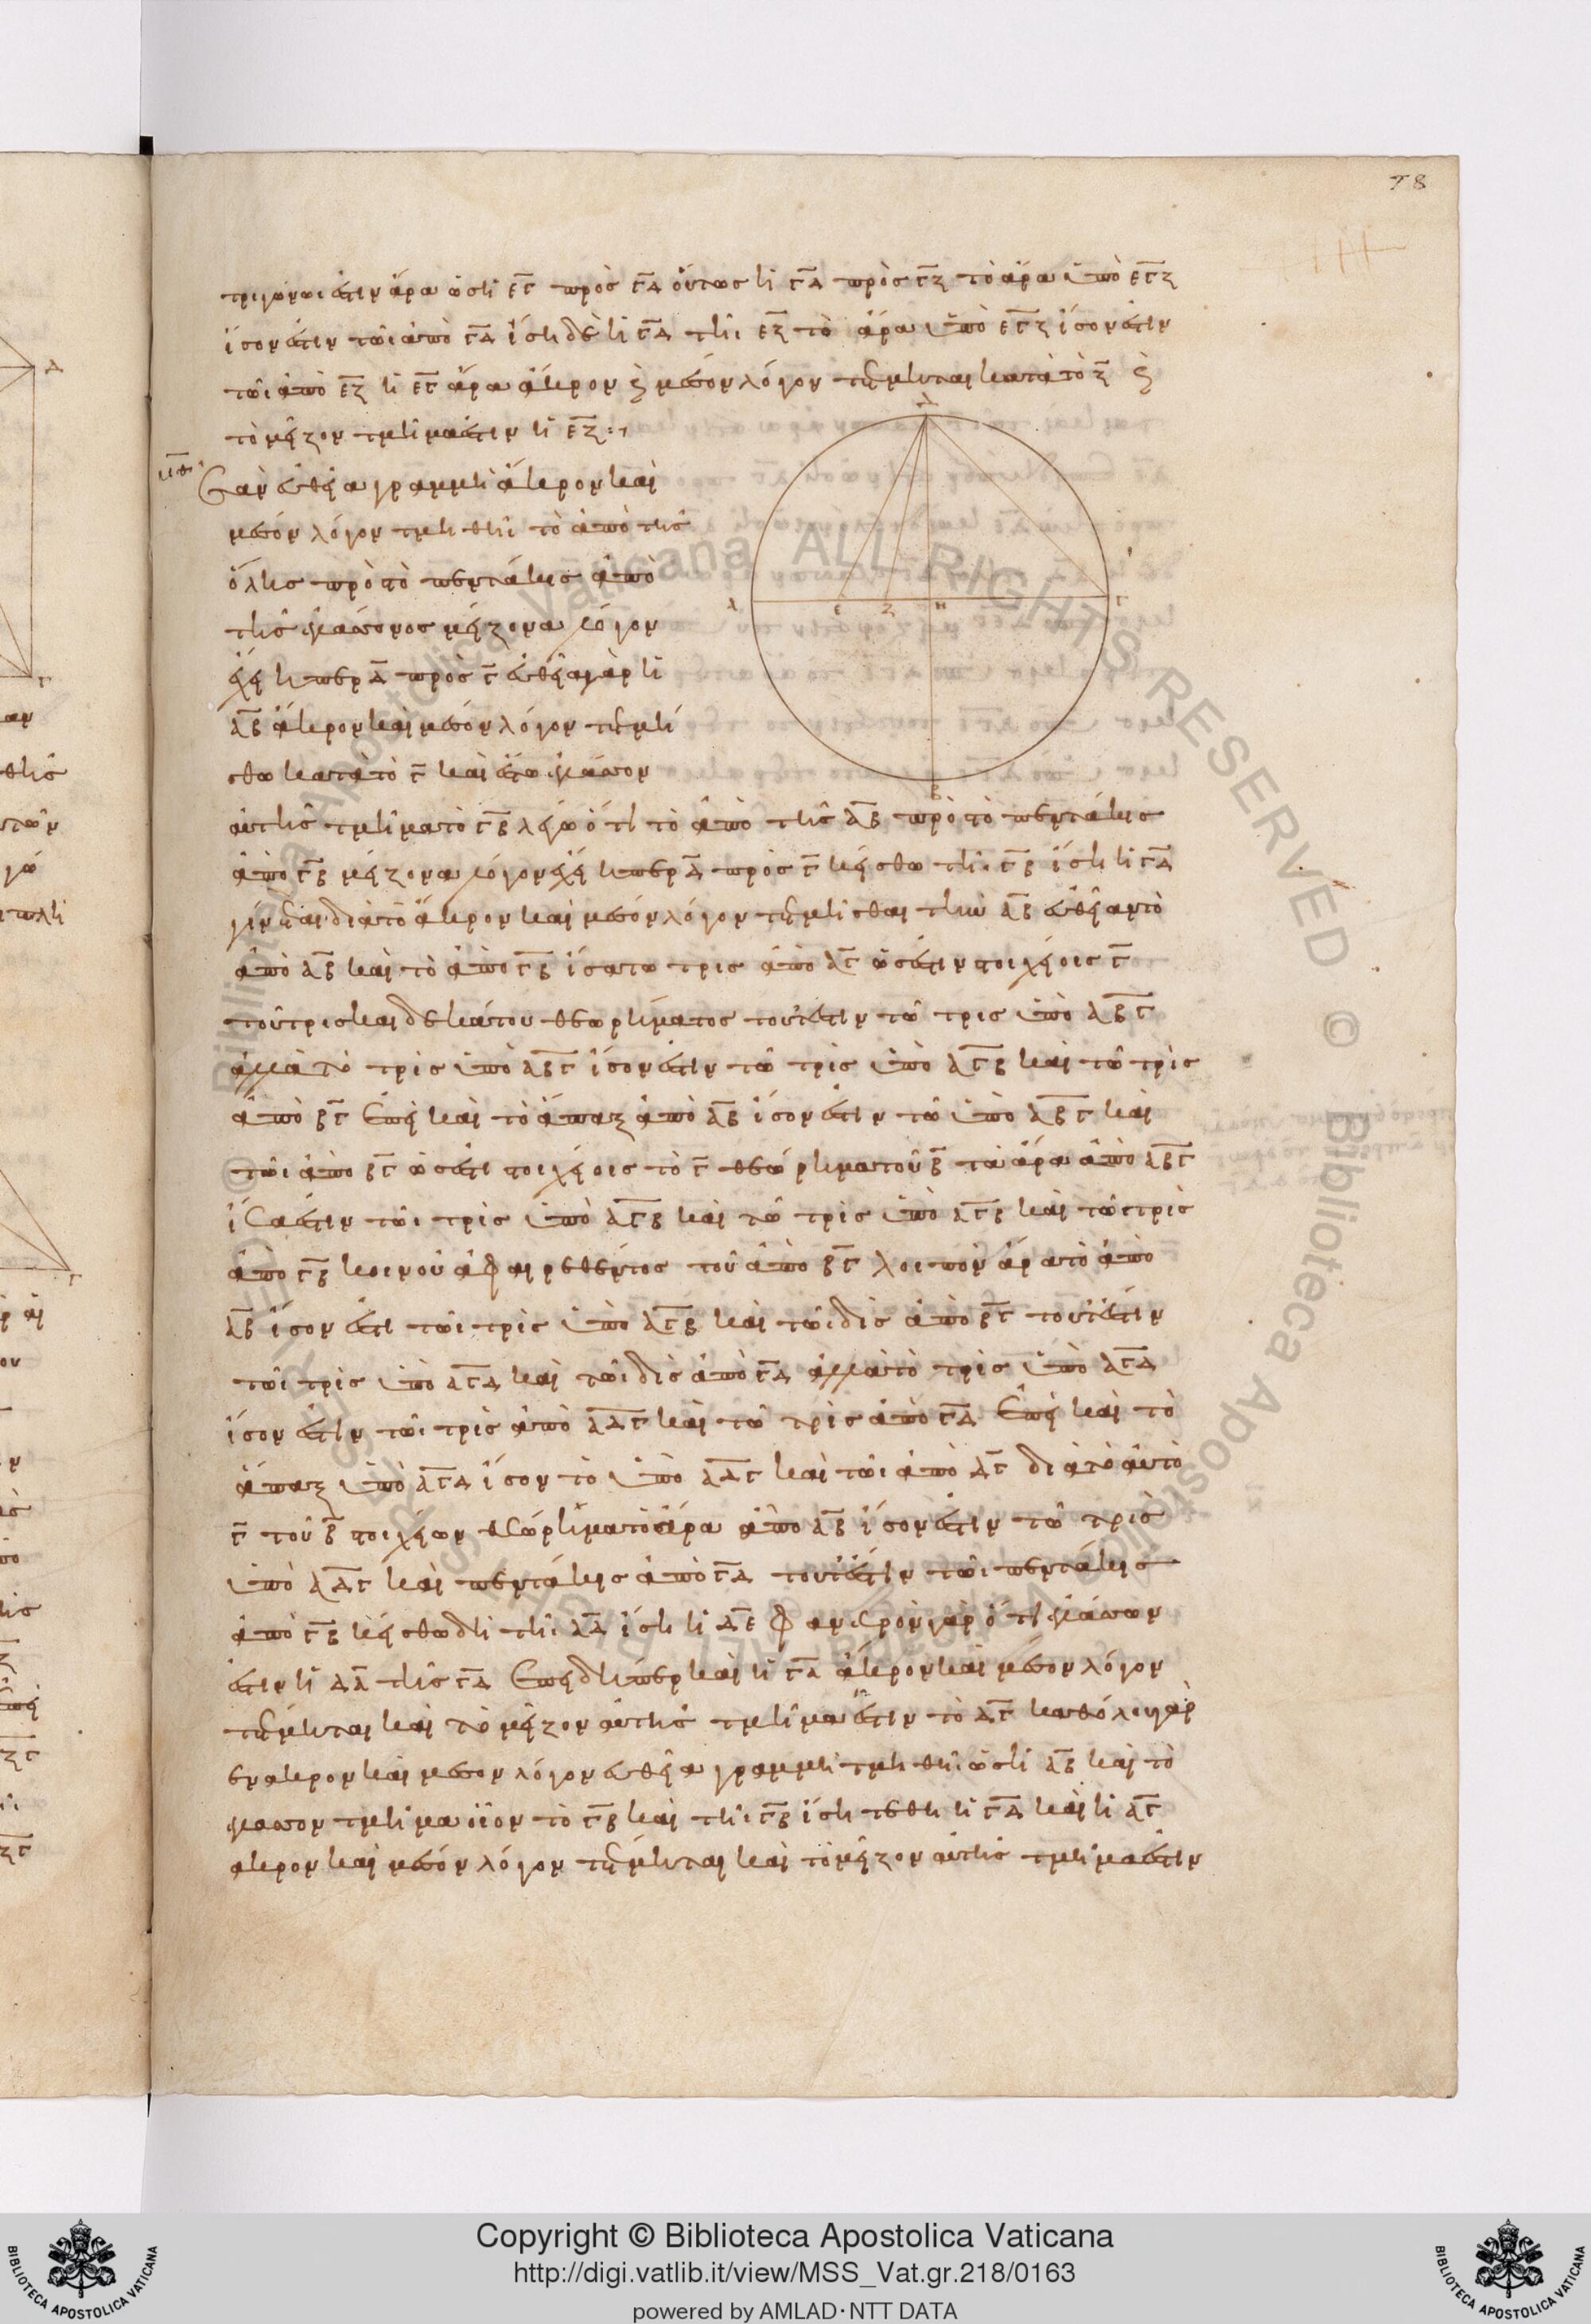 78
τριγώνωι ἐστιν ἄρα ὡς ἡ ΕΓ πρὸς ΓΔ οὕτως ἡ ΓΔ πρὸς ΓΖ τὸ ἄρα ὑπὸ ΕΓΖ
ἴσον ἐστιν τῶι ἀπὸ ΓΔ ἴση δὲ ἡ ΓΔ τῆι ΕΖ τὸ ἄρα ὑπὸ ΕΓΖ ἴσον ἐστιν
τῶι ἀπὸ ΕΖ ἡ ΕΓ ἄρα ἄκρον ϗ μέσον λόγον τέτμηται κατὰ τὸ Ζ ϗ
τὸ μεῖζον τμῆμα ἐστιν ἡ ΕΖ :
μθ Ἐὰν εὐθεῖα γραμμὴ ἄκρον καὶ
μέσον λόγον τμηθῆι τὸ ἀπὸ τῆς
ὅλης πρὸς τὸ πεντάκις ἀπὸ
τῆς ἐλάσσονος μείζονα λόγον
ἔχει ἤπερ Δ πρὸς Γ εὐθεῖα γὰρ ἡ
ΑΒ ἄκρον καὶ μέσον λόγον τετμή
σθω κατὰ τὸ Γ καὶ ἔστω ἔλασσον
αὐτῆς τμῆμα τὸ ΓΒ λέγω ὅτι τὸ ἀπὸ τῆς ΑΒ πρὸς τὸ πεντάκις
ἀπὸ ΓΒ μείζονα λόγον ἔχει ἤπερ Δ πρὸς Γ κείσθω τῆι ΓΒ ἴση ἡ ΓΔ
γίνεται διὰ τὸ ἄκρον καὶ μέσον λόγον τετμῆσθαι τὴν ΑΒ εὐθεῖαν τὸ
ἀπὸ ΑΒ καὶ τὸ ἀπὸ ΓΒ ἴσα τῶ τρις ἀπὸ ΑΓ ὡς ἐστιν στοιχείοις Γ
τοῦ τρισκαιδεκάτου θεωρήματος τουτέστιν τῶ τρις ὑπὸ ΑΒΓ
ἀλλὰ τὸ τρὶς ὑπὸ ΑΒΓ ἴσον ἐστιν τῶ τρὶς ὑπὸ ΑΓΒ καὶ τῶ τρὶς
ἀπὸ ΒΓ ἐπεὶ καὶ τὸ ἅπαξ ἀπὸ ΑΒ ἴσον ἐστιν τῶ ὑπὸ ΑΒΓ καὶ
τῶι ἀπὸ ΒΓ ὡς ἐστι στοιχείοις τὸ Γ θεώρημα τοῦ Β τὰ ἄρα ἀπὸ ΑΒΓ
ἴσα ἐστιν τῶι τρὶς ὑπὸ ΑΓΒ καὶ τῶ τρὶς ὑπὸ ΑΓΒ καὶ τῶ τρὶς
ἀπὸ ΓΒ κοινοῦ ἀφαιρεθέντος τοῦ ἀπὸ ΒΓ λοιπὸν ἄρα τὸ ἀπὸ
ΑΒ ἴσον ἐστι τῶι τρὶς ὑπὸ ΑΓΒ καὶ τῶι δὶς ἀπὸ ΒΓ τουτέστιν
τῶι τρὶς ὑπὸ ΑΓΔ καὶ τῶι δὶς ἀπὸ ΓΔ ἀλλὰ τὸ τρὶς ὑπὸ ΑΓΔ
ἴσον ἐστιν τῶι τρὶς ἀπὸ ΑΔΓ καὶ τῶ τρὶς ἀπὸ ΓΔ ἐπεὶ καὶ τὸ
ἅπαξ ὑπὸ ΑΓΔ ἴσον τὸ ὑπὸ ΑΔΓ καὶ τῶι ἀπὸ ΔΓ διὰ τὸ αὐτὸ
Γ τοῦ Β στοιχείων θεώρημα τὸ ἄρα ἀπὸ ΑΒ ἴσον ἐστιν τῶ τρὶς
ὑπὸ ΑΔΓ καὶ πεντάκις ἀπὸ ΓΔ τουτέστιν τῶι πεντάκις
ἀπὸ ΓΒ κείσθω δὴ τῆι ΑΔ ἴση ἡ ΔΕ φανερὸν γὰρ ὅτι ἐλάσσων
ἐστιν ἡ ΔΑ τῆς ΓΔ ἐπειδήπερ καὶ ἡ ΓΑ ἄκρον καὶ μέσον λόγον
τέτμηται καὶ τὸ μεῖζον αὐτῆς τμῆμα ἐστιν τὸ ΔΓ καθόλου γὰρ
ἐὰν ἄκρον καὶ μέσον λόγον εὐθεῖα γραμμὴ τμηθῆι ὡς ἡ ΑΒ καὶ τὸ
ἔλασσον τμῆμα οἷον τὸ ΓΒ καὶ τῆι ΓΒ ἴση τεθῆ ἡ ΓΔ καὶ ἡ ΑΓ
ἄκρον καὶ μέσον λόγον τέτμηται καὶ τὸ μεῖζον αὐτῆς τμῆμα ἐστιν
Δ
Α Ε Ζ Η Γ
Β
Copyright © Biblioteca Apostolica Vaticana
http://digi.vatlib.it/view/MSS_Vat.gr.218/0163
powered by AMLAD·NTT DATA
BIBLIOTECA APOSTOLICA VATICANA
BIBLIOTECA APOSTOLICA VATICANA
© Biblioteca Apostolica Vaticana ALL RIGHTS RESERVED © Biblioteca Apostolica Vaticana ALL RIGHTS RESERVED